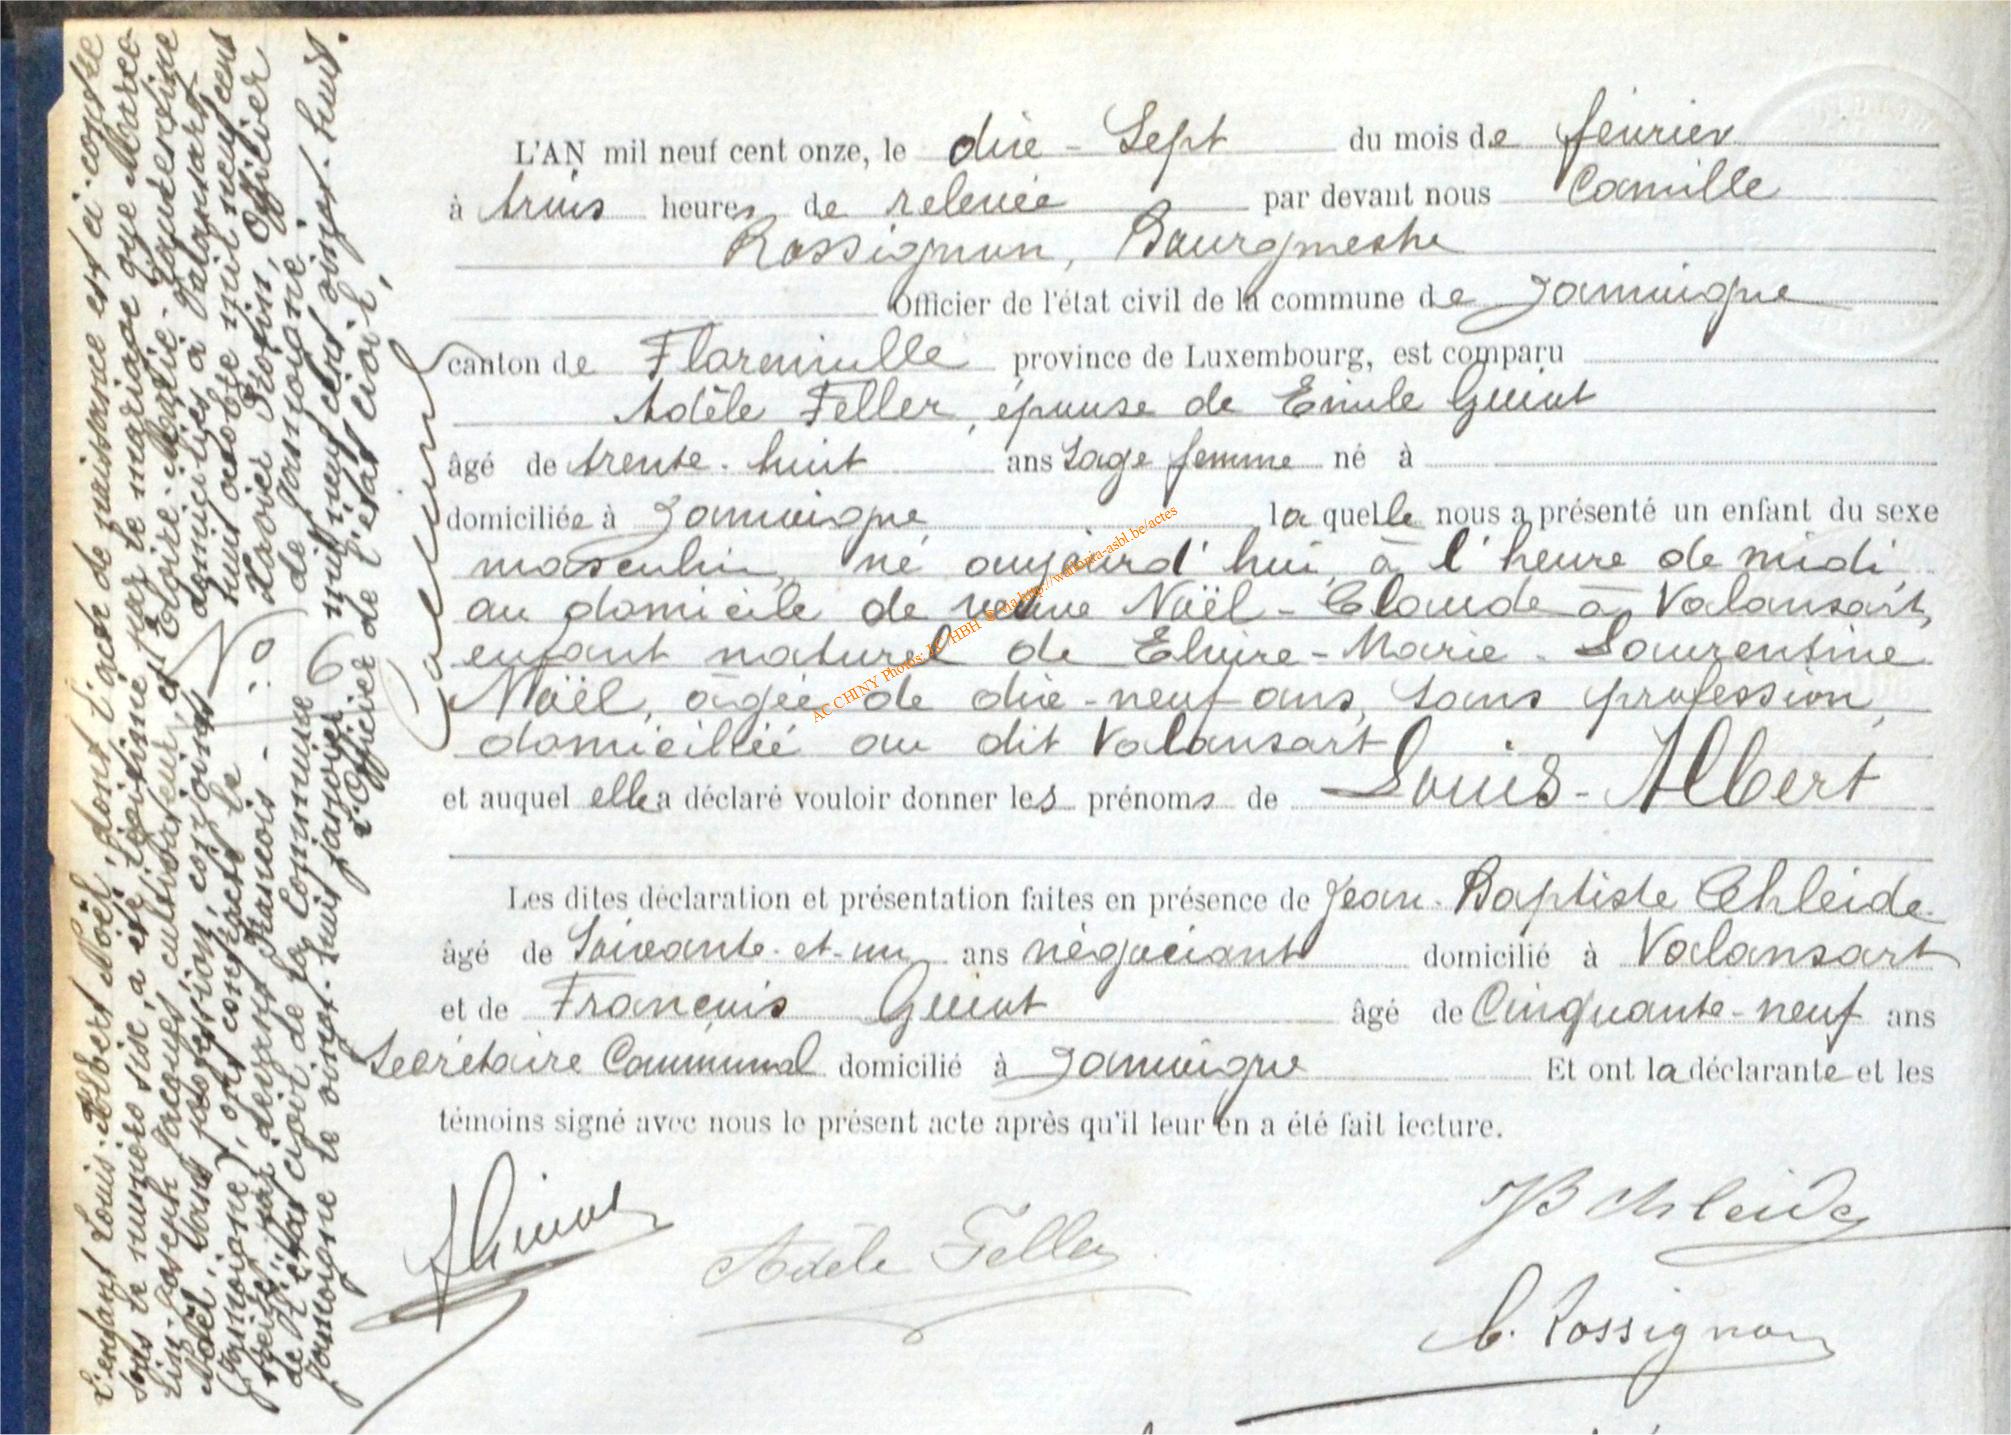 L'AN mil neuf cent onze, le dix-Sept du mois de février
à trois heures de relevée par devant nous Camille
Rossignon, Bourgmestre
Officier de l'état civil de la commune de Jamoigne
canton de Florenville province de Luxembourg, est comparu
Adèle Feller, épouse de Emile Guiot
âgé de trente-huit ans Sage femme né à
domiciliée à Jamoigne laquelle nous a présenté un enfant du sexe
masculin, né aujourd'hui, à l'heure de midi,
au domicile de veuve Noël-Claude à Valansart,
enfant naturel de Elvire-Marie-Laurentine
Noël, âgée de dix-neuf ans, sans profession,
domiciliée au dit Valansart
et auquel elle a déclaré vouloir donner les prénoms de Louis-Albert
Les dites déclaration et présentation faites en présence de Jean-Baptiste Chleide
âgé de Soixante-et-un ans négociant domicilié à Valansart
et de François Guiot âgé de Cinquante-neuf ans
Secrétaire Communal domicilié à Jamoigne Et ont la déclarante et les
témoins signé avec nous le présent acte après qu'il leur en a été fait lecture.
L'enfant Louis-Albert Noël, dont l'acte de naissance est ci-contre
sous le numéro six, a été légitimé par le mariage que
-Joseph Jacques, cultivateur, et Elvire-Marie-Laurentine
Noël, sans profession, conjoints domiciliés à Valansart
(Jamoigne), ont contracté le huit octobre mil neuf cent
devant François-Xavier, Officier
de l'état civil de la Commune de Jamoigne.
Jamoigne le vingt-huit janvier mil neuf cent vingt-huit.
L'Officier de l'état civil,
N° 6
AC CHINY Photos: JC HBH © via http://wallonia-asbl.be/actes
FGuiot
Adèle Feller
JB Chleide
C. Rossignon